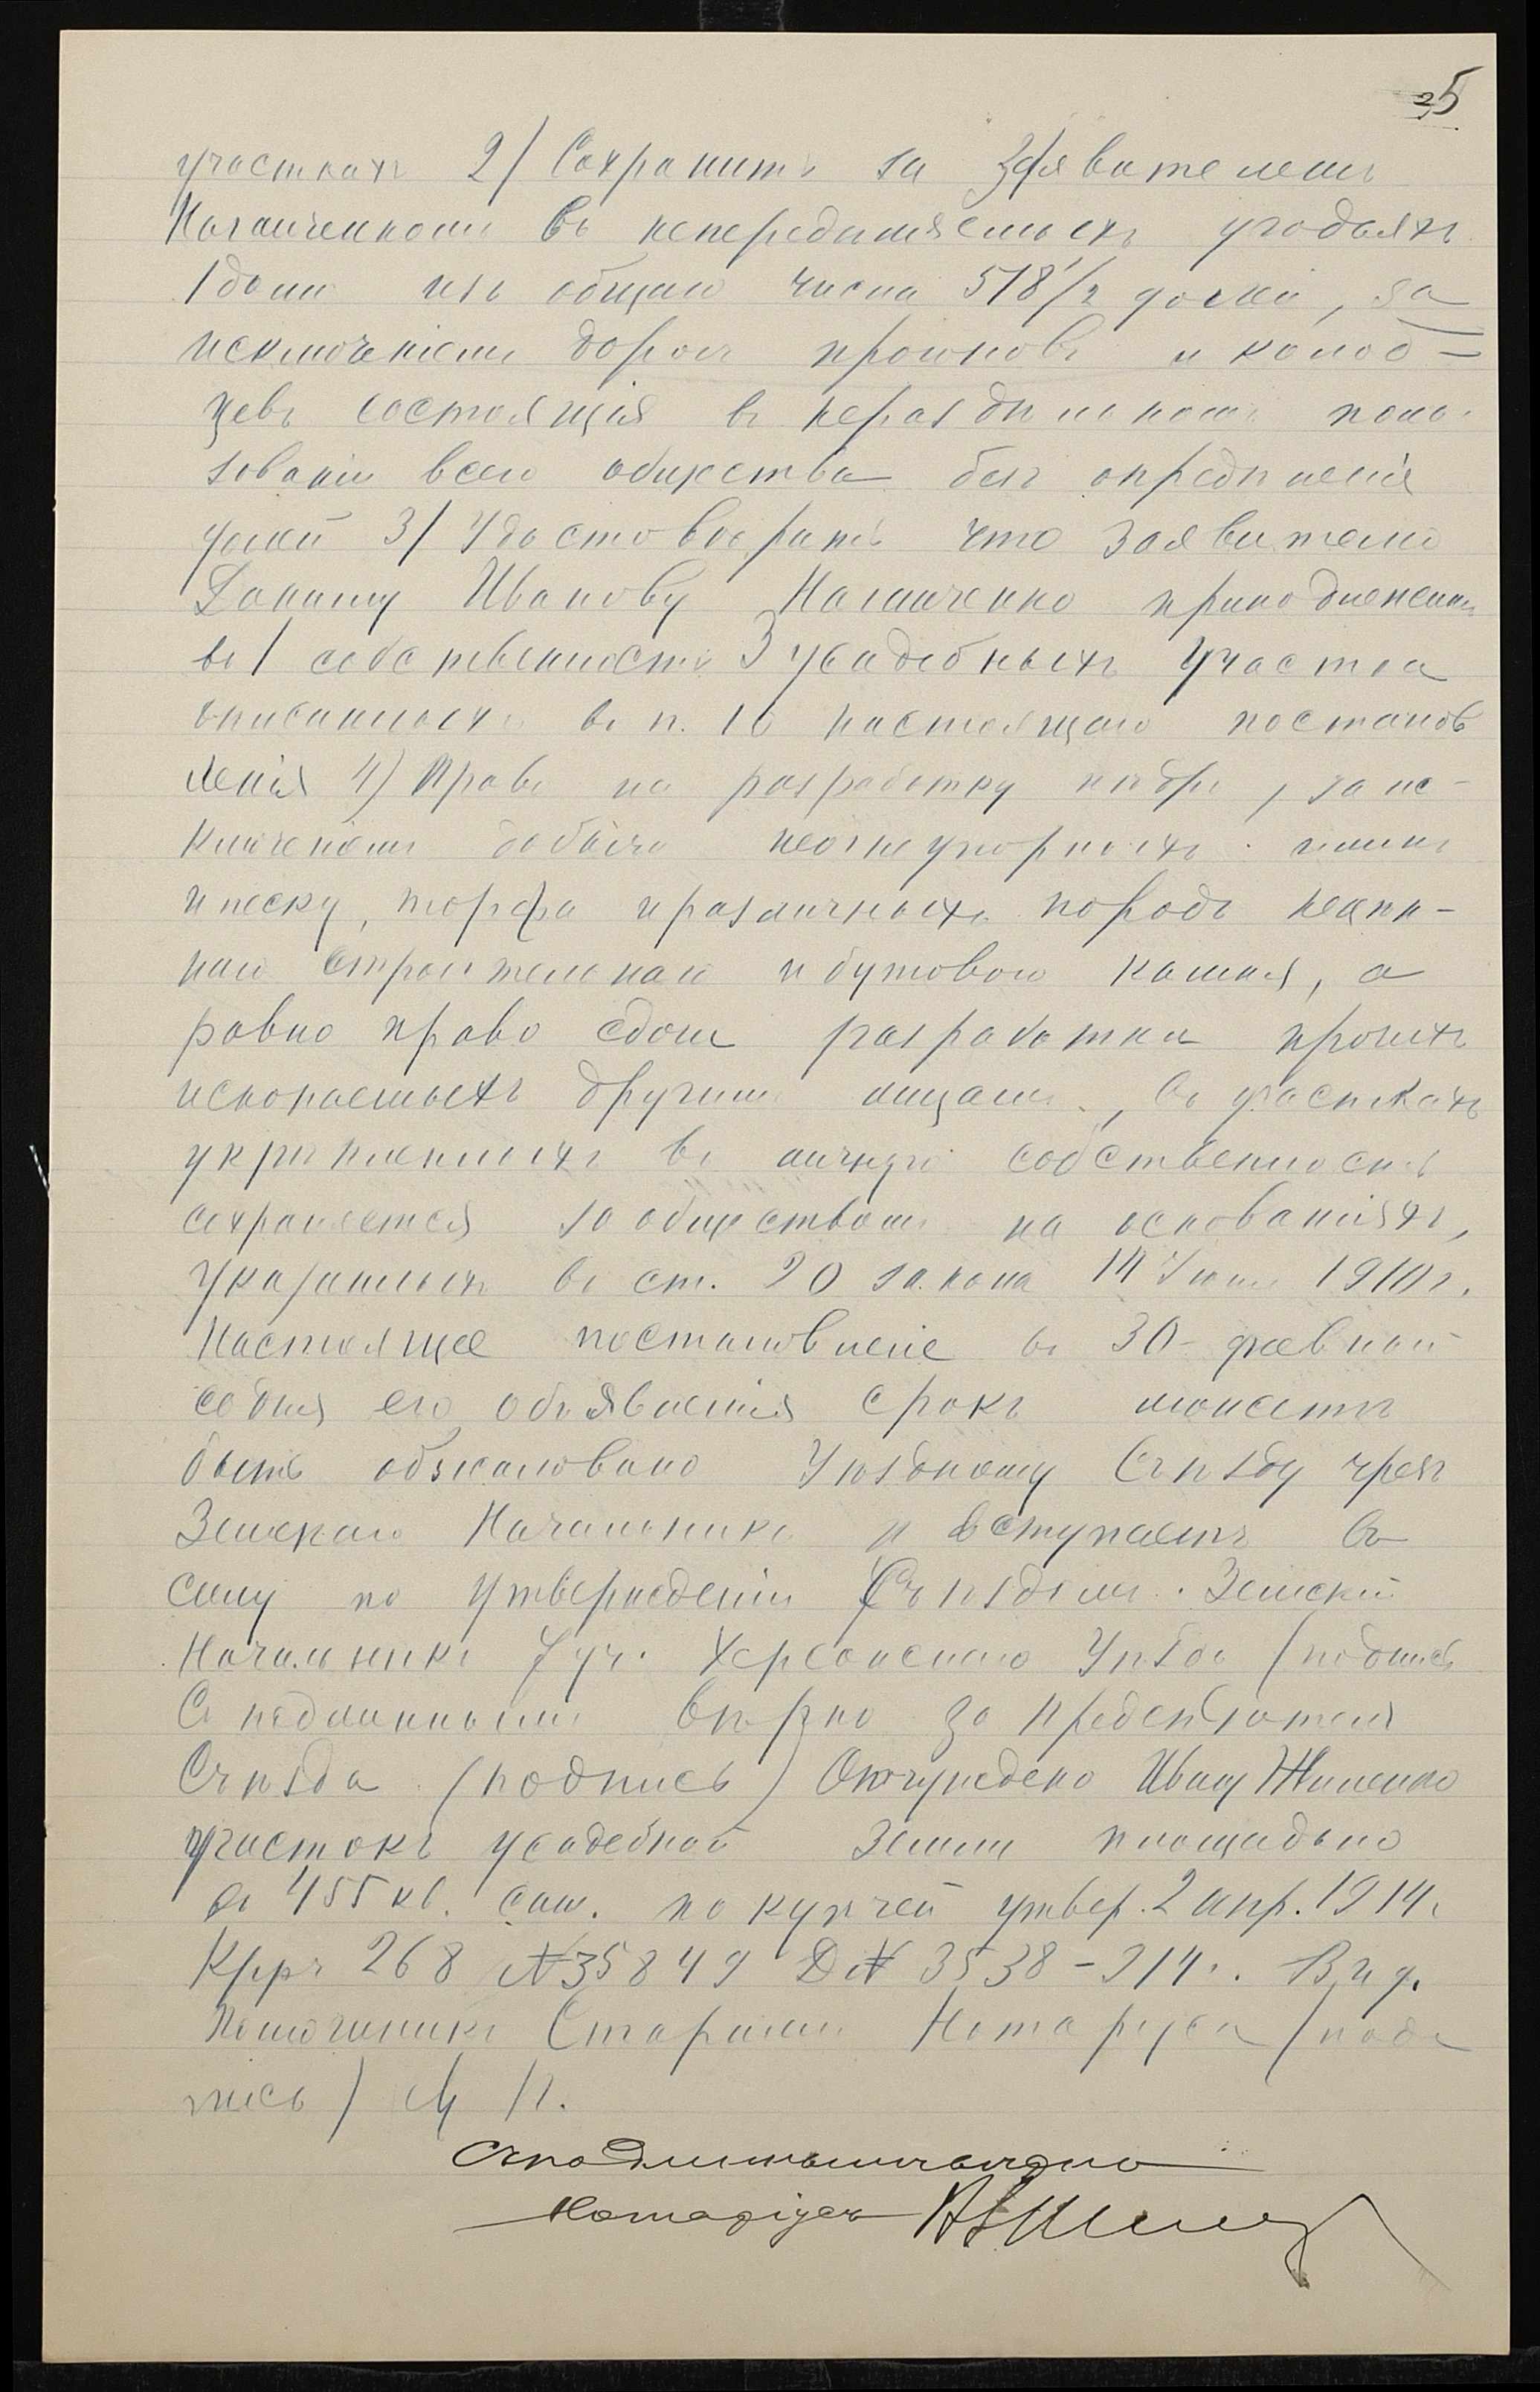 25
участкахъ 2/ Сохранить за Заявителемъ
въ непередѣляемыхъ угодьяхъ
1 долю изъ общаго числа 518 1/2 долей, за
исключеніемъ дорогъ прогоновъ и колод-
цевъ состоящія въ нераздѣльномъ поль
зованіи всего общества безъ опредѣленія
долей 3/ Удостовѣрить что заявителю
Данилу Иванову принадлежитъ
въ собственность 3 усадебныхъ участка
описанныхъ въ п. 10 настоящаго постанов
ленія 4) Право на разработку нѣдръ, за ис-
ключеніемъ добычи неогнеупорныхъ глины
и песку, торфа и различныхъ породъ нецѣн-
наго строительнаго и бутоваго камня, а
равно право сдачи разработки прочихъ
ископаемыхъ другимъ лицамъ, въ участкахъ
укрѣпленныхъ въ личную собственность
сохраняется за обществомъ на основаніяхъ,
указанныхъ въ ст. 20 закона 14 Іюня 1910 г.
Настоящее постановленіе въ 30-дневный
со дня его объявленія срокъ можетъ
быть обжаловано Уѣздному Съѣзду чрезъ
Земскаго Начальника и вступаетъ въ
силу по утвержденіи Съѣздомъ. Земскій
Начальникъ 7 уч. Херсонскаго Уѣзда (подпись
Съ подлиннымъ вѣрно за Предсѣдателя
Съѣзда (подпись) Отчуждено Ивану Жиленко
участокъ усадебной земли площадью
въ 455 кв. саж. по купчей утвер. 2 апр. 1914г.
Крѣр. 268 №35849 Д№ 3538-914г. В. и д.
Помощника Старшаго Нотаріуса (подп
пись) М П.
Съ подлиннымъ вѣрно
Нотаріусъ